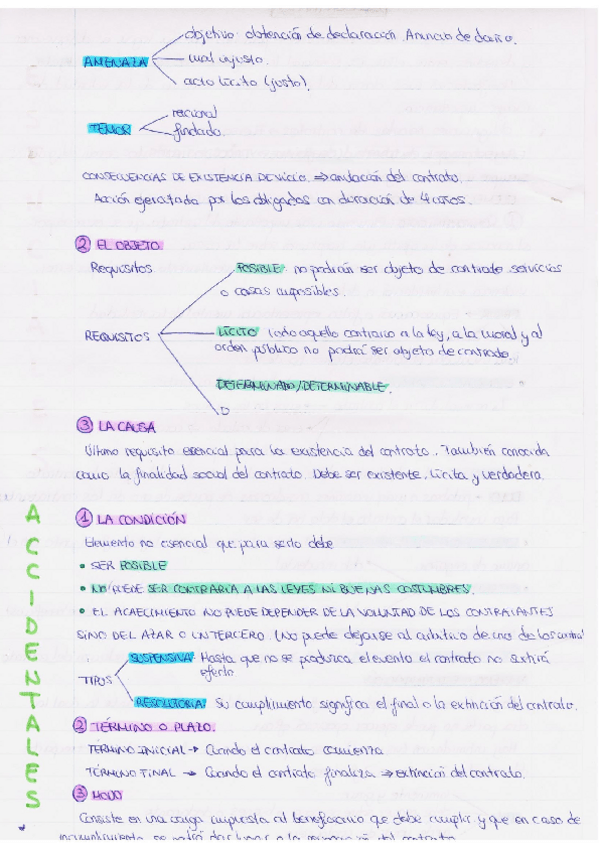 objetivo: obtención de declaración. Anuncio de daño.
AMENAZA
mal injusto.
acto lícito (justo).
racional
TEMOR
fundado.
CONSECUENCIAS DE EXISTENCIA DE VICIO. ⇒ anulación del contrato.
Acción ejercitada por los obligados con duración de 4 años.
② EL OBJETO.
Requisitos
POSIBLE: no podrán ser objeto de contrato servicios
o cosas imposibles.
REQUISITOS
LÍCITO: todo aquello contrario a la ley, a la moral y al
orden público no podrá ser objeto de contrato.
DETERMINADO/DETERMINABLE.
③ LA CAUSA
Último requisito esencial para la existencia del contrato. También conocida
como la finalidad social del contrato. Debe ser existente, lícita y verdadera.
ACCIDENTALES
① LA CONDICIÓN
Elemento no esencial que para serlo debe
• SER POSIBLE
• NO PUEDE SER CONTRARIA A LAS LEYES NI BUENAS COSTUMBRES.
• EL ACAECIMIENTO NO PUEDE DEPENDER DE LA VOLUNTAD DE LOS CONTRATANTES
SINO DEL AZAR O UN TERCERO. (No puede dejarse al arbitrio de uno de los
SUSPENSIVA: Hasta que no se produzca el evento el contrato no surtirá
efecto
TIPOS
RESOLUTORIA: Su cumplimiento significa el final o la extinción del contrato.
② TÉRMINO O PLAZO.
TÉRMINO INICIAL → Cuando el contrato comienza
TÉRMINO FINAL → Cuando el contrato finaliza ⇒ extinción del contrato.
③ MODO
Consiste en una carga impuesta al beneficiario que debe cumplir y que en caso de
incumplimiento se podrá dar lugar a la